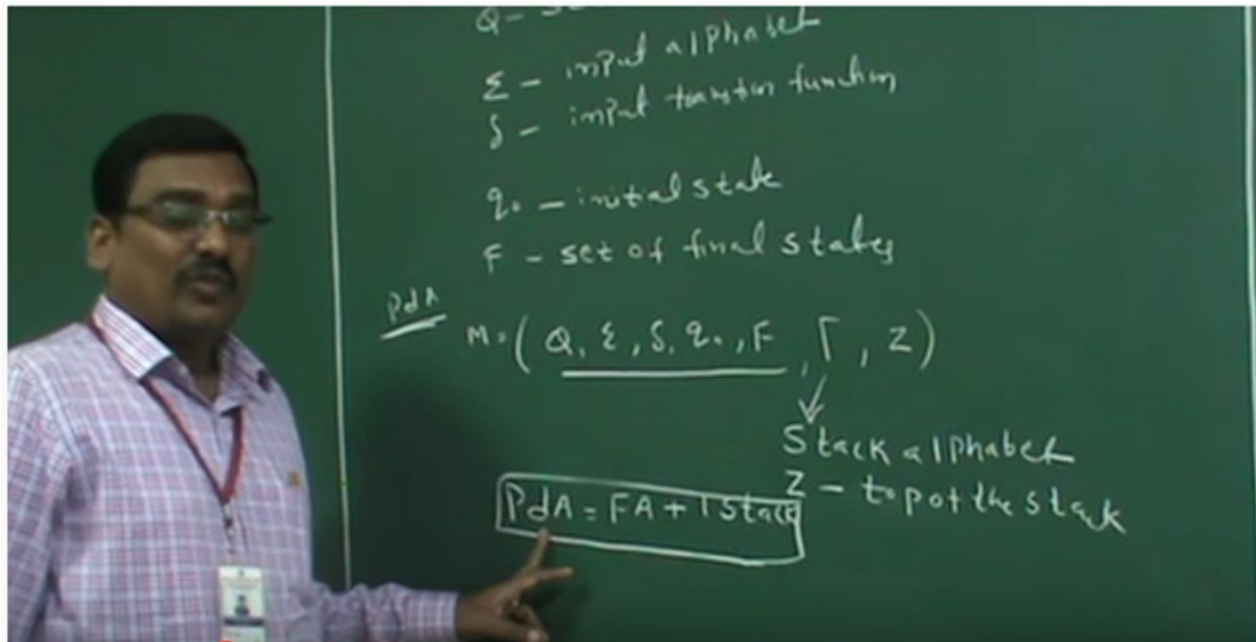 Q -
Σ - input alphabet
δ - input transition function
q₀ - initial state
F - set of final states
PdA
M = ( Q, Σ, δ, q₀, F, Γ, Z )
Stack alphabet
Z - top of the stack
PdA = FA + 1 Stack